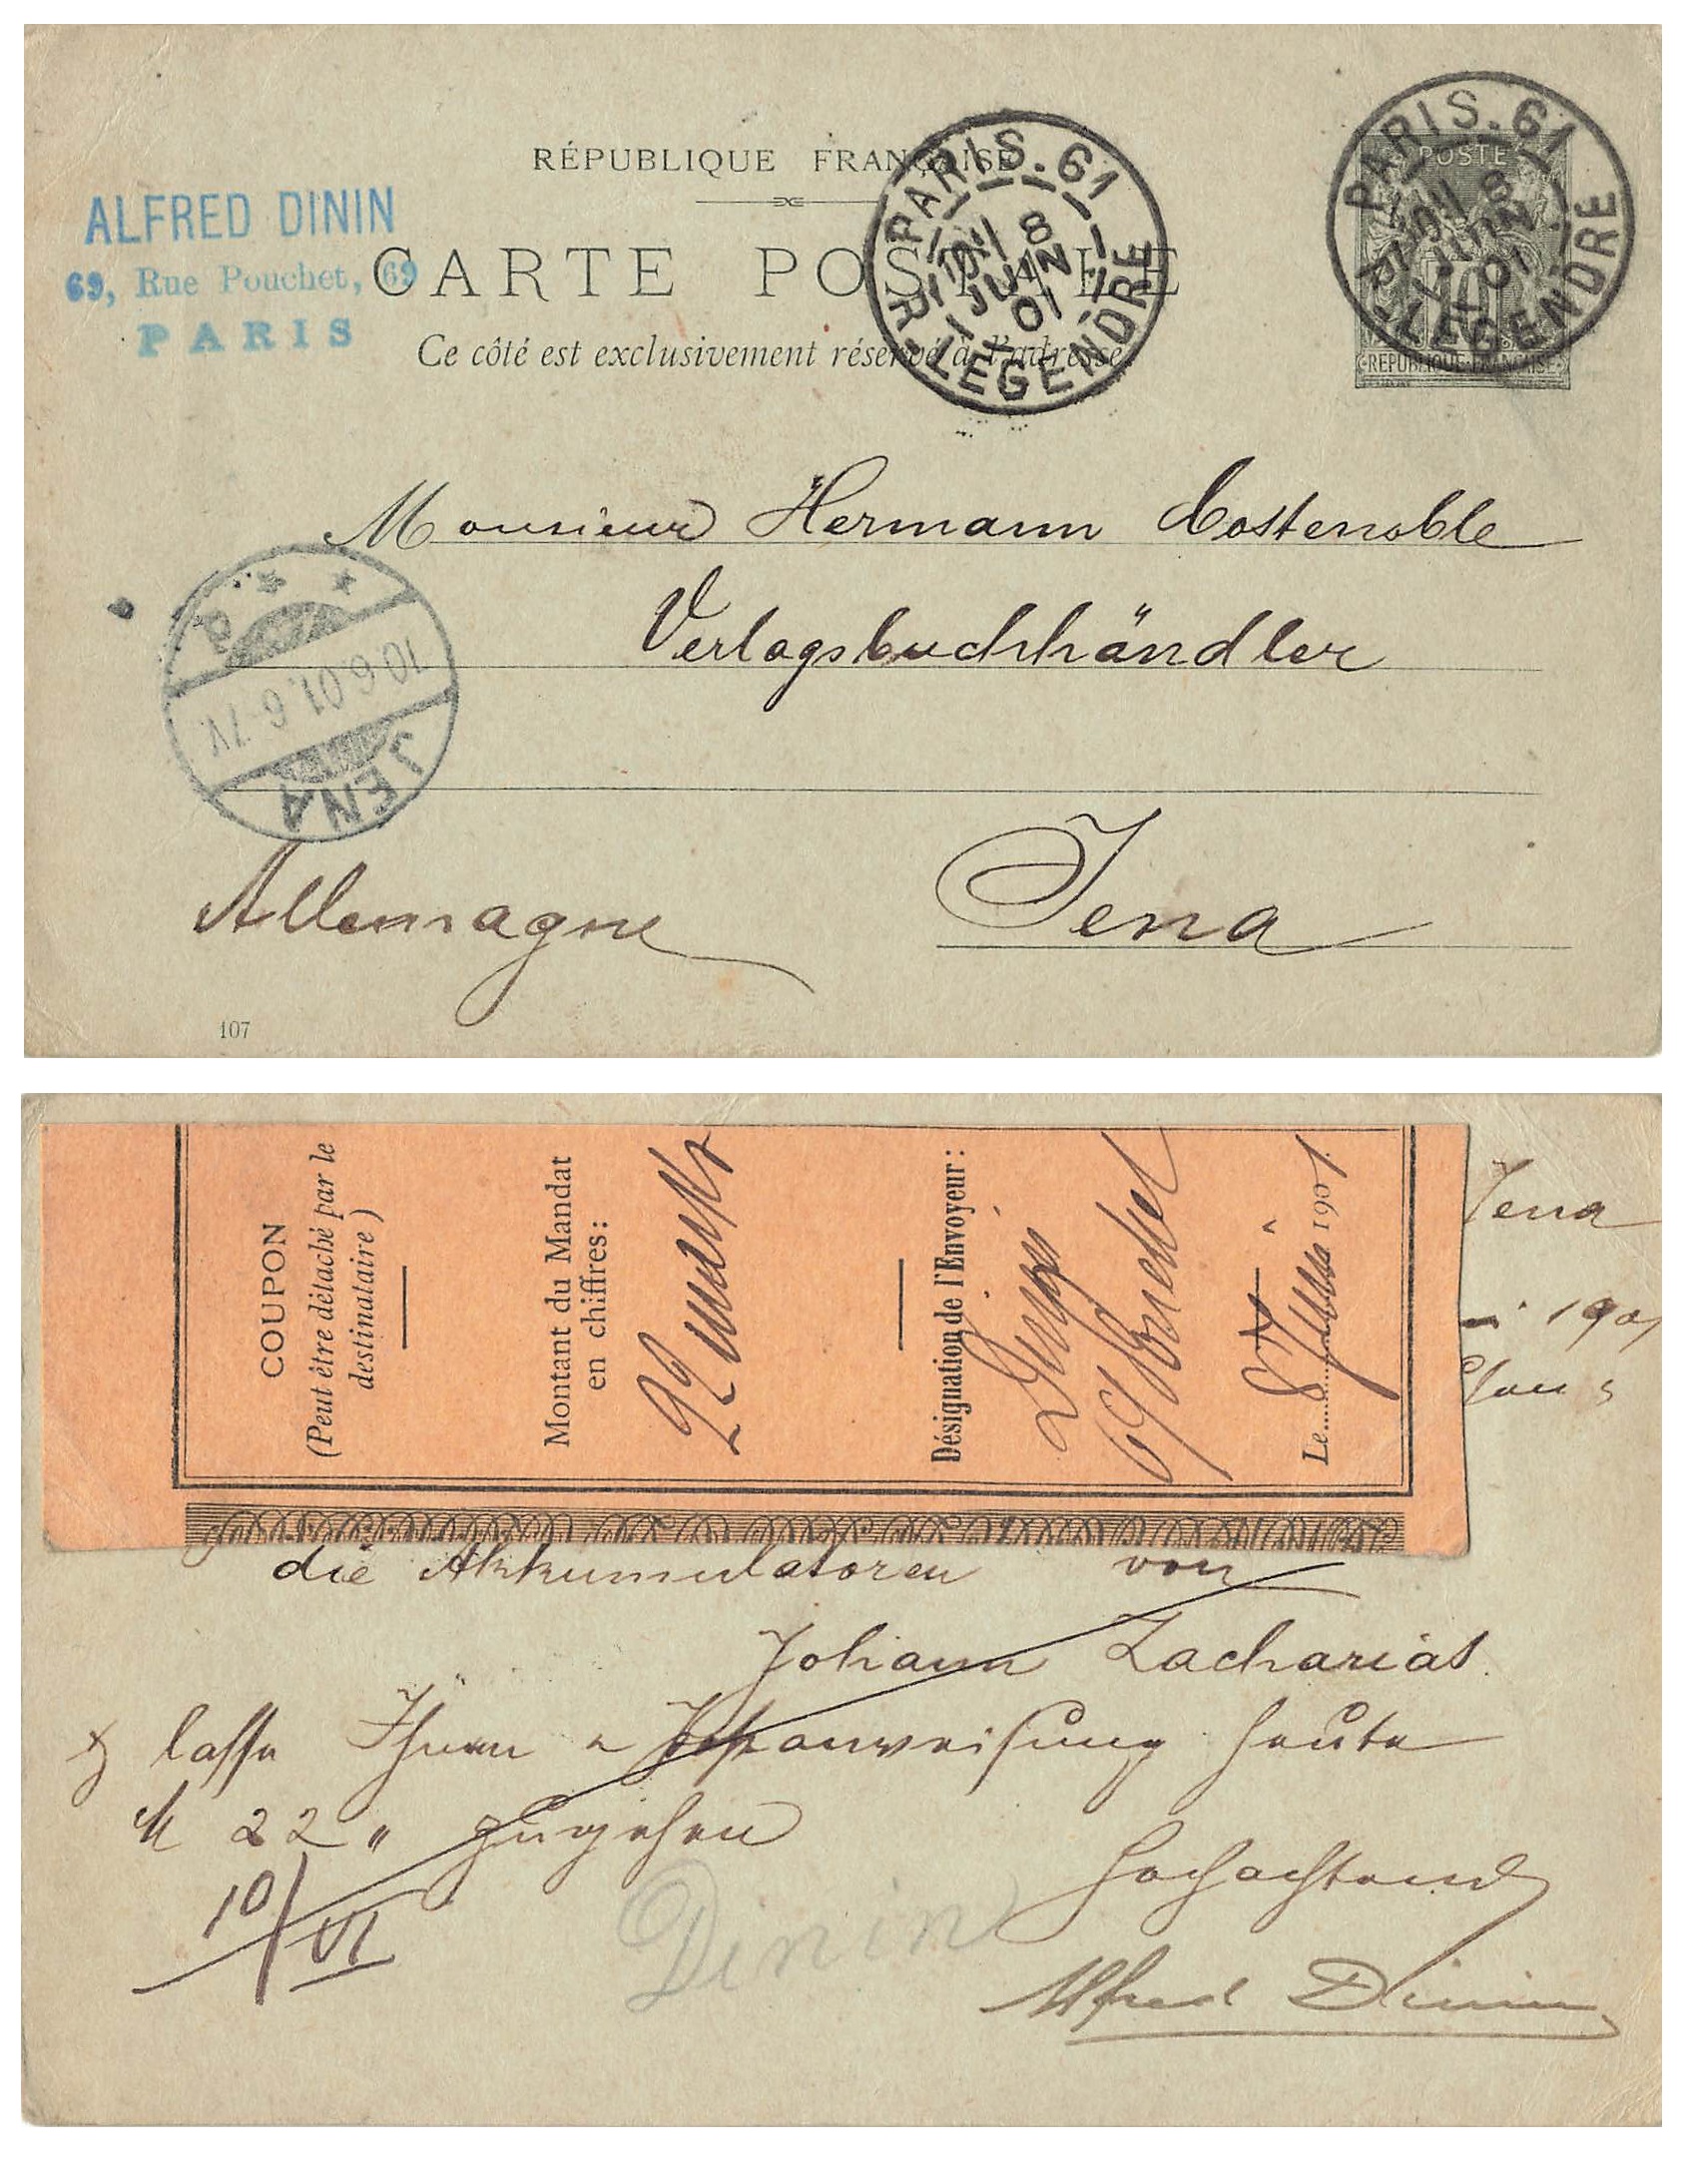 RÉPUBLIQUE FRANÇAISE
ALFRED DININ
69, Rue Pouchet, 69
PARIS
CARTE POSTALE
Ce côté est exclusivement réservé à l'adresse.
PARIS.61
8
JUIN
01
R. LEGENDRE
POSTE
PARIS.61
8
JUIN
01
R. LEGENDRE
REPUBLIQUE FRANÇAISE
Monsieur Hermann Costenoble
Verlagsbuchhändler
JENA
10.6.01.6-7V.
Jena
Allemagne
107
COUPON
(Peut être détaché par le
destinataire)
Montant du Mandat
en chiffres:
22
Désignation de l'Envoyeur:
69
Le 8 Juin 1901.
Jena
1901
die Akkumulatoren von
Johann Zacharias.
lasse Ihnen Postanweisung heute
M 22 " zugehen
Hochachtend
10/VI
Dinin
Alfred Dinin